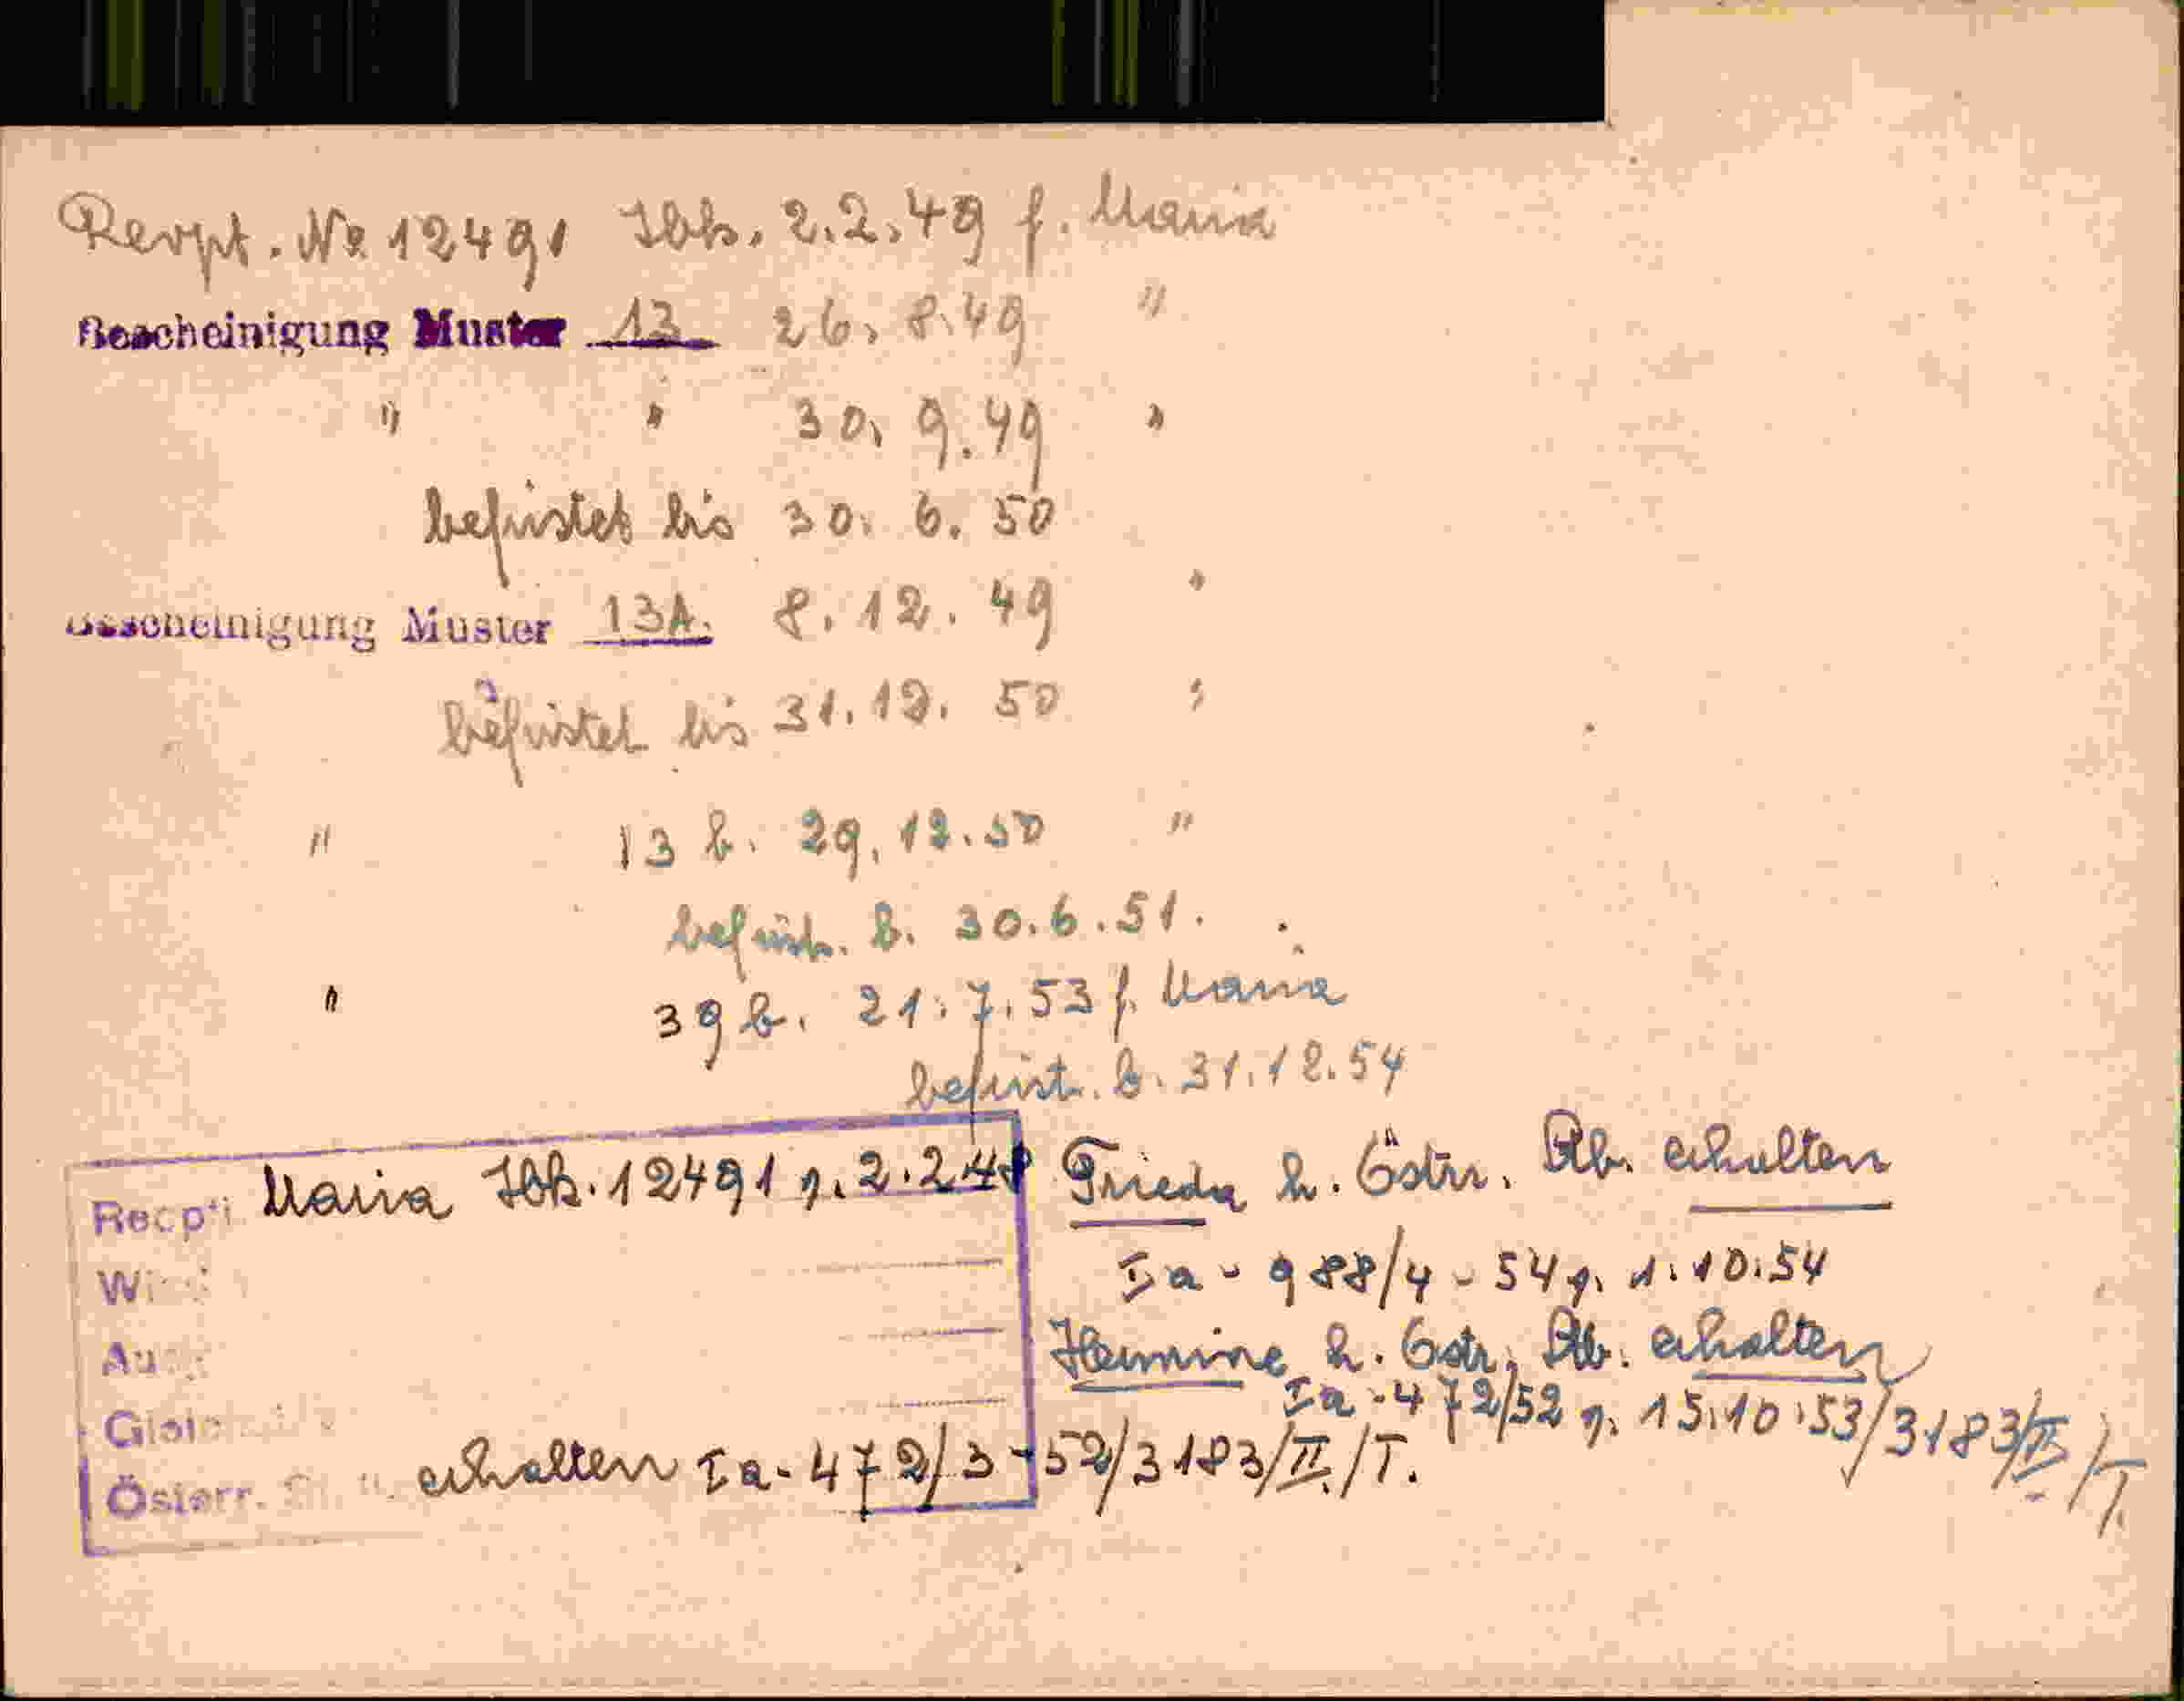 Rezpt. Nr 12491 Ibk. 2.2.49 f. Maria
Bescheinigung Muster 13 26. 8.49 "
" " 30. 9.49 "
befristet bis 30. 6. 50
Bescheinigung Muster 13A. 8. 12. 49 "
befristet bis 31. 12. 50 "
" 13 b. 29. 12. 50 "
befrist. b. 30.6.51.
" 39 b. 21.7.53 f. Maria
befrist. b. 31.12.54
Maria Ibk. 12491 v. 2.2.49
Frieda h. Östr. Stb. erhalten
Ia - 988/4 - 54 v. 1.10.54
Hermine h. Östr. Stb. erhalten
Ia - 472/52 v. 15.10.53/3183/II/T.
Österr. erhalten Ia - 472/3 - 52/3183/II/T.